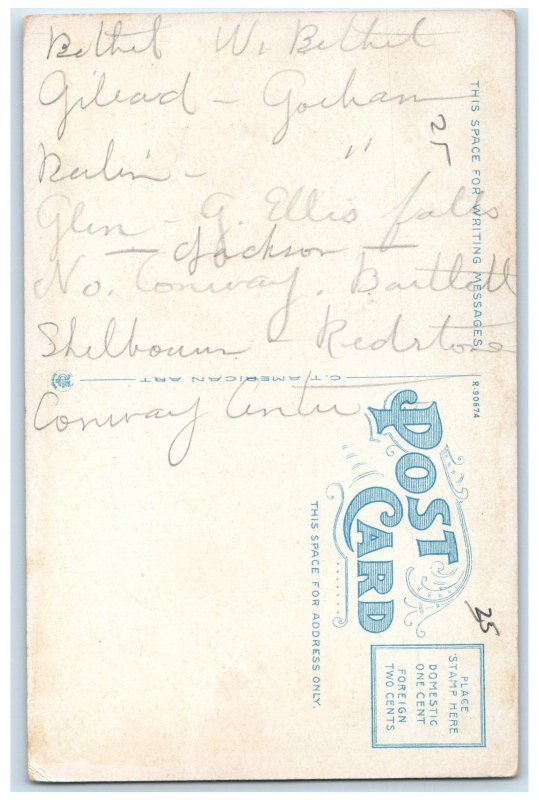 Bethel W. Bethel
Gilead - Gorham
Berlin - "
Glen - G. Ellis falls
- Jackson -
No. Conway. Bartlett
Shelbourn - Redstone
Conway Center
25
THIS SPACE FOR WRITING MESSAGES
C.T. AMERICAN ART
R-90674
POST CARD
THIS SPACE FOR ADDRESS ONLY.
25
PLACE
STAMP HERE
DOMESTIC
ONE CENT
FOREIGN
TWO CENTS